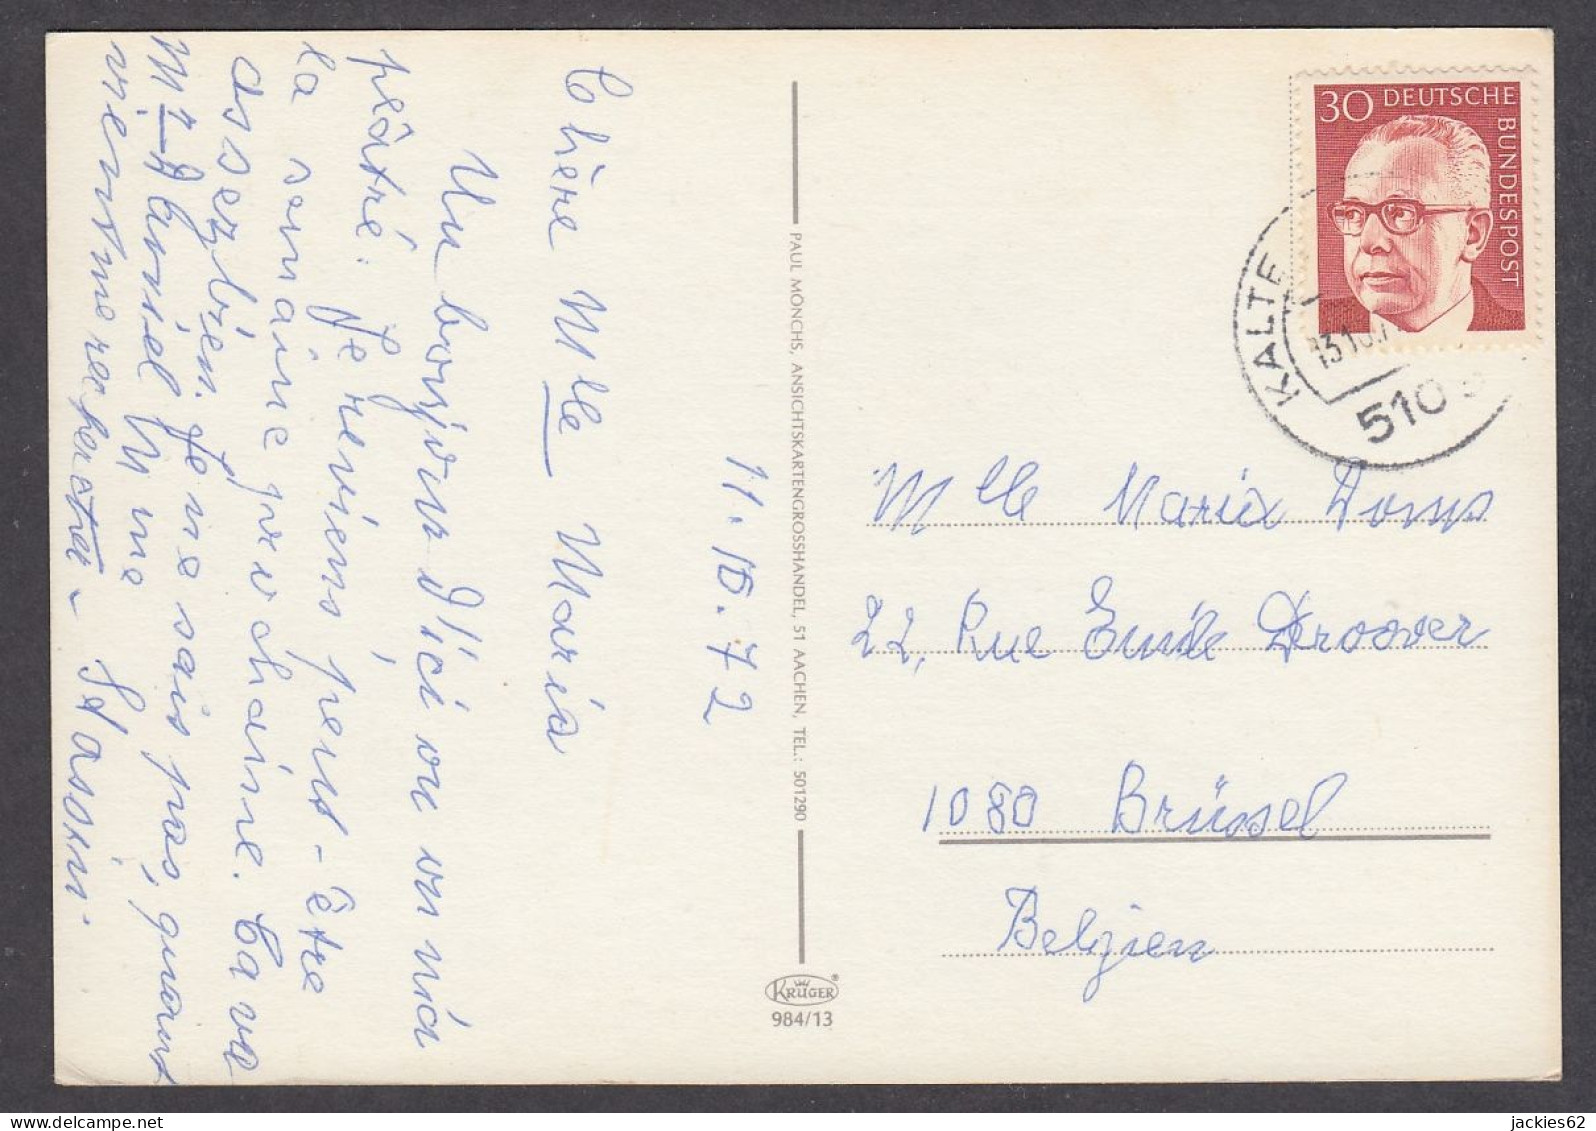 11. 10. 72
Chère Mlle Maria
Un bonjour d'ici où on m'a
peâtré. Je reviens peut-être
la semaine prochaine. Ca va
assez bien. Je ne sais pas, quant
Mr Daniel M me
vient me rechercher
PAUL MÖNCHS, ANSICHTSKARTENGROSSHANDEL, 51 AACHEN, TEL.: 501290
KRÜGER
984/13
30 DEUTSCHE
BUNDESPOST
KALTE
13.10.7
510
Mlle Maria Doms
22, Rue Emile Deroover
1080 Brüssel
Belgien
jackies62